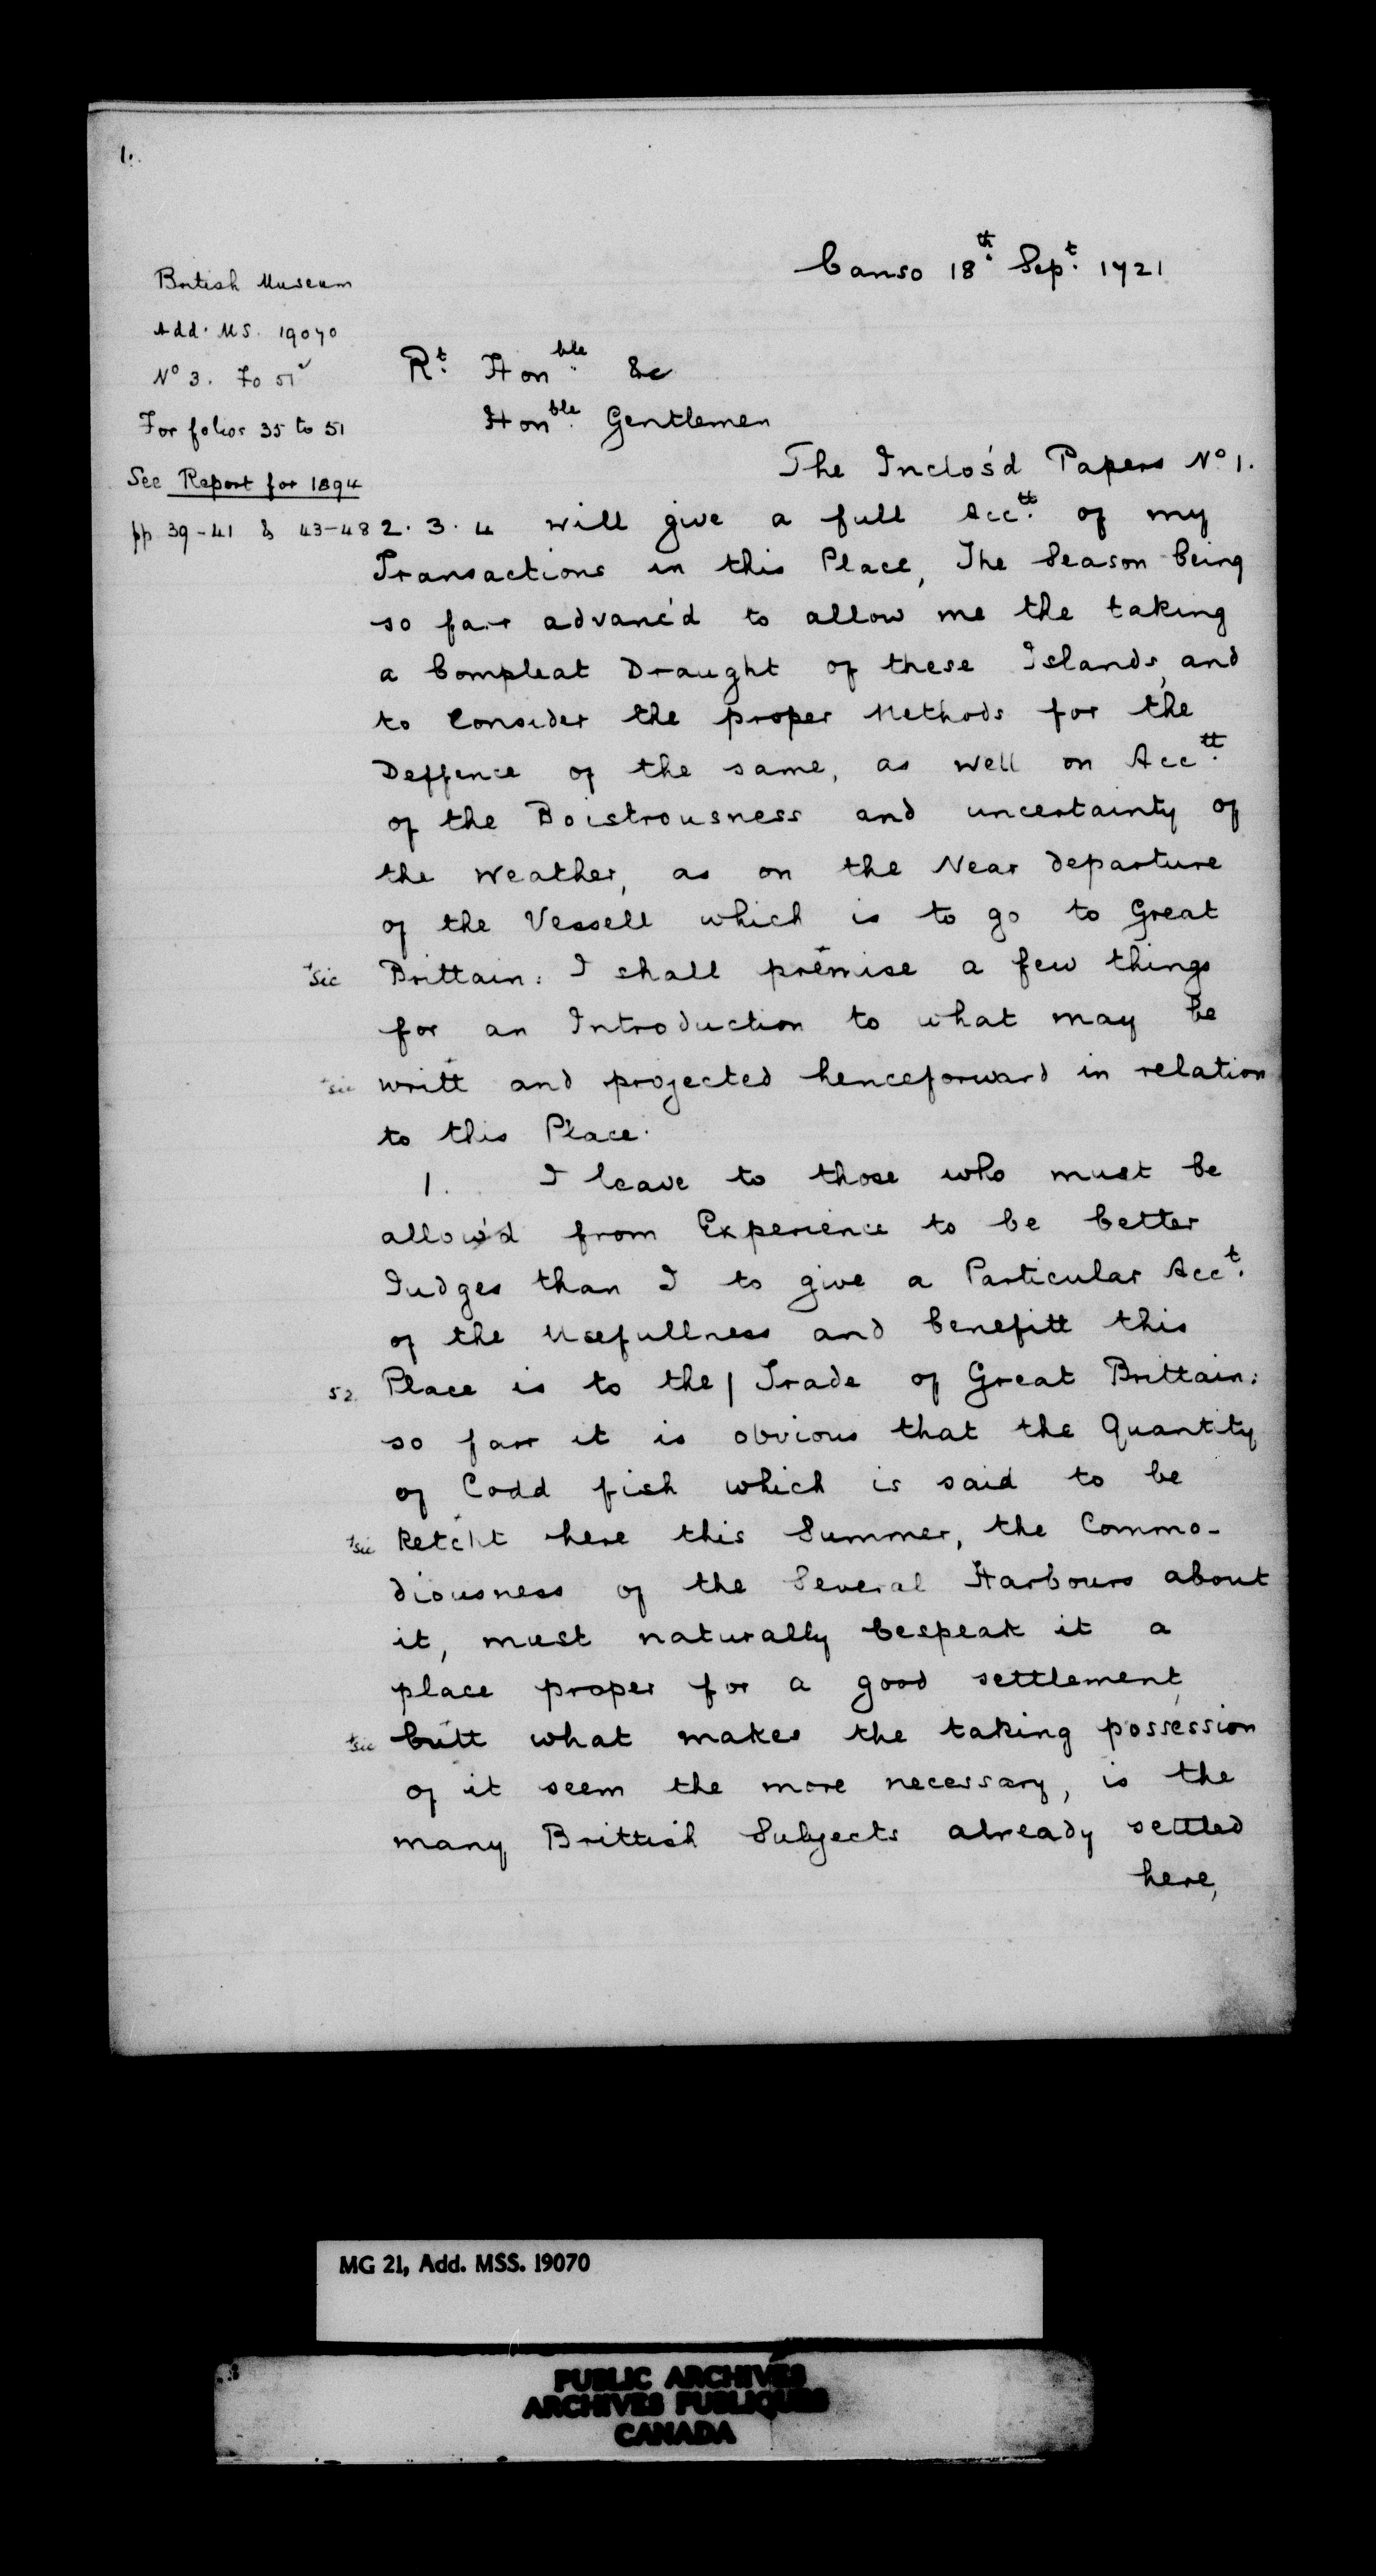 1.
Canso 18th. Sept. 1721
British Museum
Add. MS. 19070
No 3. Fo 51v
For folios 35 to 51
See Report for 1894
pp 39-41 & 43-48
Rt. Honble. &c
Honble. Gentlemen
The Inclos'd Papers No 1.
2. 3. 4 will give a full Acctt. of my
Transactions in this Place, The Season being
so farr advanc'd to allow me the taking
a Compleat Draught of these Islands, and
to Consider the proper Methods for the
Deffence of the same, as well on Acctt.
of the Boistrousness and uncertainty of
the Weather, as on the Near departure
of the Vessell which is to go to Great
+sic Brittain: I shall premise a few things
for an Introduction to what may be
+sic writt and projected henceforward in relation
to this Place.
1. I leave to those who must be
allow'd from Experience to be better
Judges than I to give a Particular Acct.
of the Usefullness and benefitt this
52. Place is to the | Trade of Great Brittain:
so farr it is obvious that the Quantity
of Codd fish which is said to be
+sic Ketcht here this Summer, the Commo-
diousness of the Several Harbours about
it, must naturally bespeak it a
place proper for a good settlement,
+sic butt what makes the taking possession
of it seem the more necessary, is the
many Brittish Subjects already settled
here,
MG 21, Add. MSS. 19070
PUBLIC ARCHIVES
ARCHIVES PUBLIQUES
CANADA